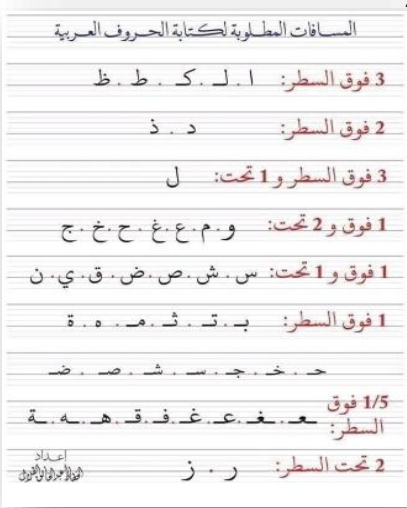 المسافات المطلوبة لكتابة الحروف العربية
3 فوق السطر: ا . لـ . كـ . ط . ظ
2 فوق السطر: د . ذ
3 فوق السطر و 1 تحت: ل
1 فوق و 2 تحت: و . م . ع . غ . ح . خ . ج
1 فوق و 1 تحت: س . ش . ص . ض . ق . ي . ن
1 فوق السطر: بـ . تـ . ثـ . مـ . ه . ة
حـ . خـ . جـ . سـ . شـ . صـ . ضـ
1/5 فوق
السطر: ـعـ . ـغـ . عـ . غـ . فـ . قـ . هـ . ـهـ . ـة
2 تحت السطر: ر . ز
إعداد